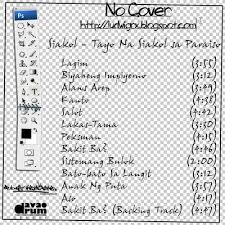 No Cover
http://ludwigrx.blogspot.com
Siakol - Tayo Na Siakol sa Paraiso
Lagim (3:55)
Biyaheng Impiyerno (3:12)
Alans Arep (3:49)
Kanto (4:38)
Salot (4:42)
Lakas-Tama (3:30)
Peksman (4:15)
Bakit Ba? (4:46)
Sistemang Bulok (2:00)
Bato-bato sa Langit (3:12)
Anak Ng Puta (3:57)
Aso (4:17)
Bakit Ba? (Backing Track) (4:47)
Ps
davao
drum